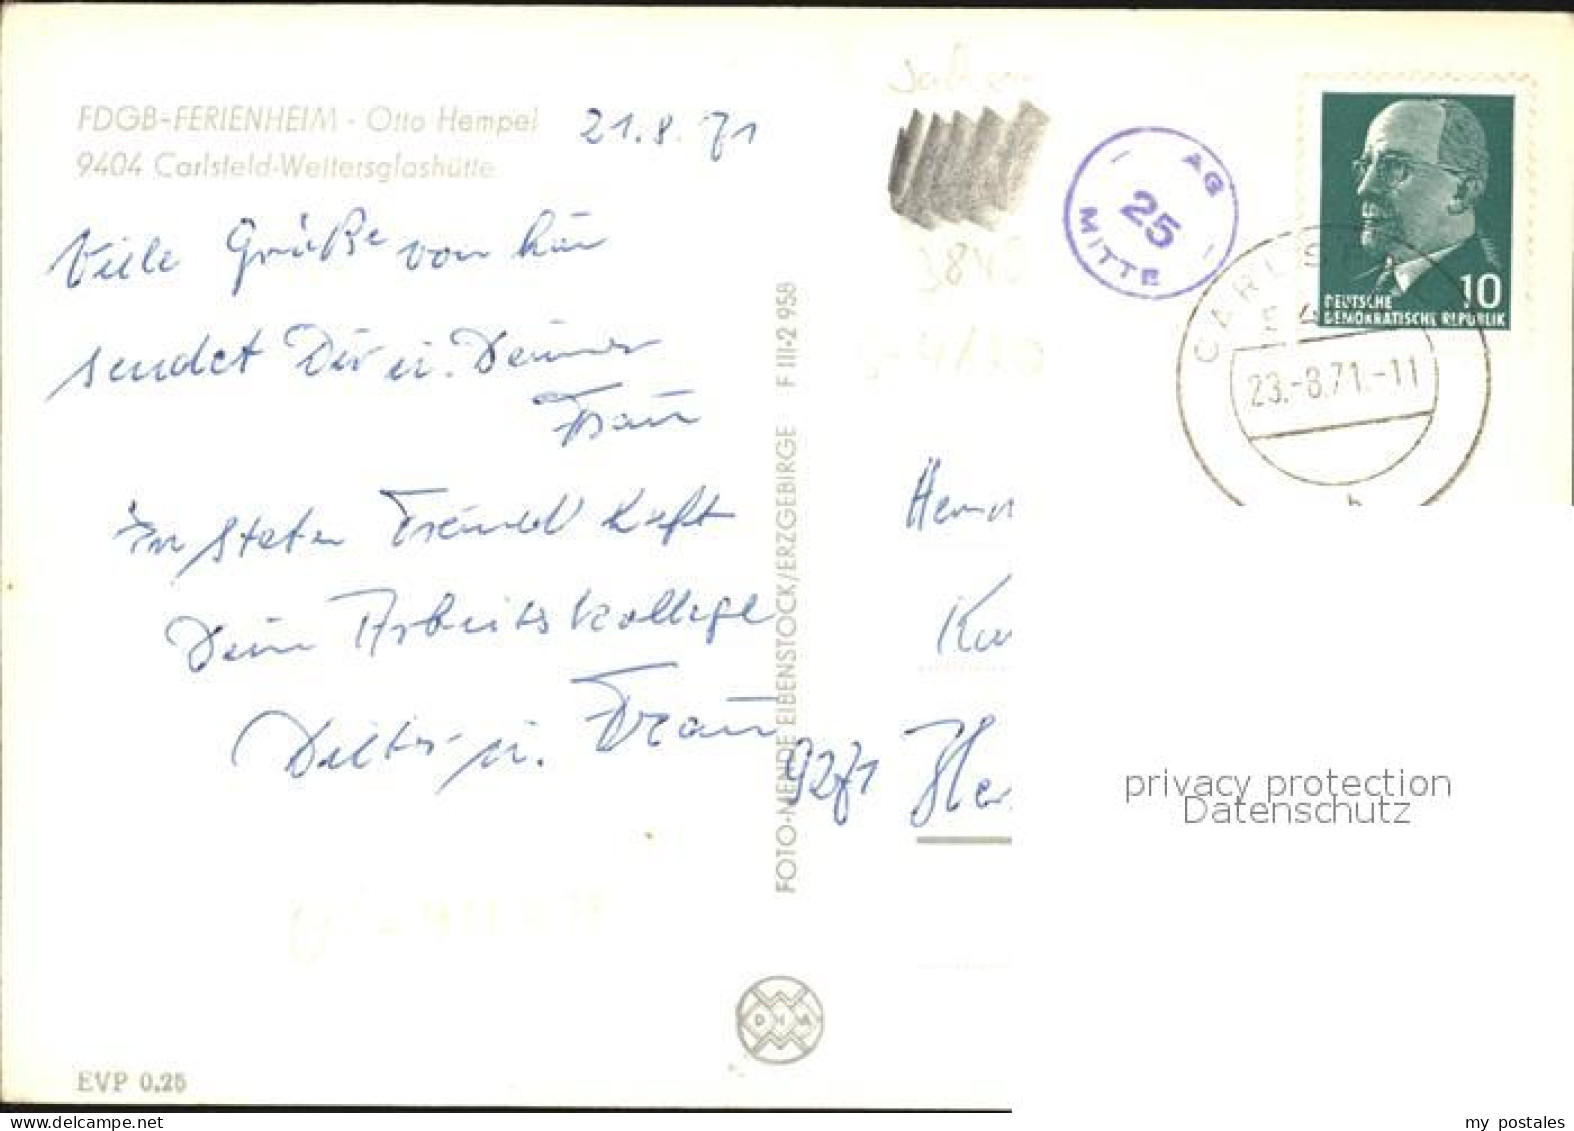 FDGB-FERIENHEIM · Otto Hempel
9404 Carlsfeld-Weitersglashütte
21.8.71
Viele Grüße von hir
sendet Dir u. Deiner
Frau
In steter Freund kaft
Dein Arbeitskollege
Dieter u. Frau
EVP 0,25
FOTO-MENDE EIBENSTOCK/ERZGEBIRGE F III-2 958
DIMA
AG
25
MITTE
10
DEUTSCHE
DEMOKRATISCHE REPUBLIK
CARLS
23.-8.71.-11
b
Herrn
9271
privacy protection
Datenschutz
www.delcampe.net
my postales